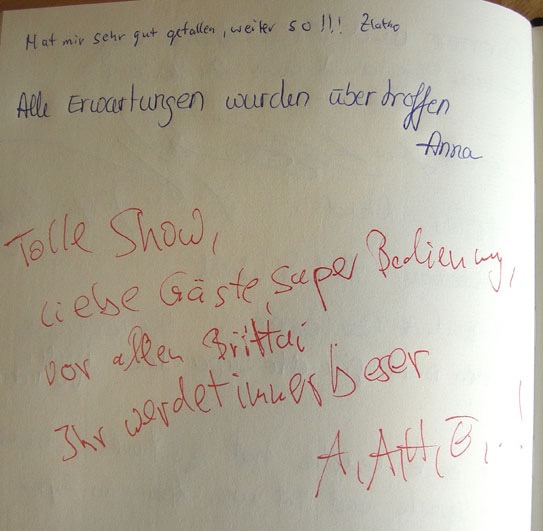 Hat mir sehr gut gefallen, weiter so!!! Zlatko
Alle Erwartungen wurden übertroffen
Anna
Tolle Show,
liebe Gäste, super Bedienung,
vor allen Brittai
Ihr werdet immer besser
A, A, H, B, ..!